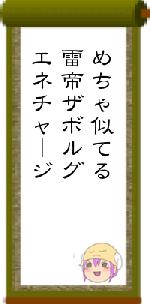 めちゃ似てる
雷帝ザボルグ
エネチャージ